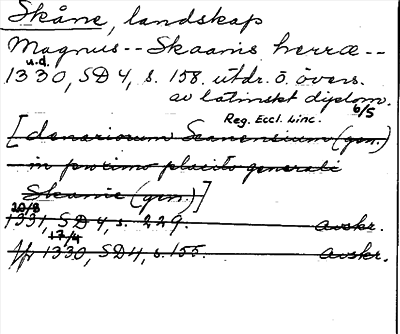 Skåne, landskap
Magnus -- Skaanis herræ --
u.d.
1330, SD 4, s. 158. utdr. ö. övers.
av latinskt diplom.
6/5
Reg. Eccl. Linc.
[denariorum Scanensium (gen.)
in proximo placito generali
Skanie (gen.)]
20/8
1331, SD 4, s. 229. avskr.
17/4
1330, SD 4, s. 155. avskr.